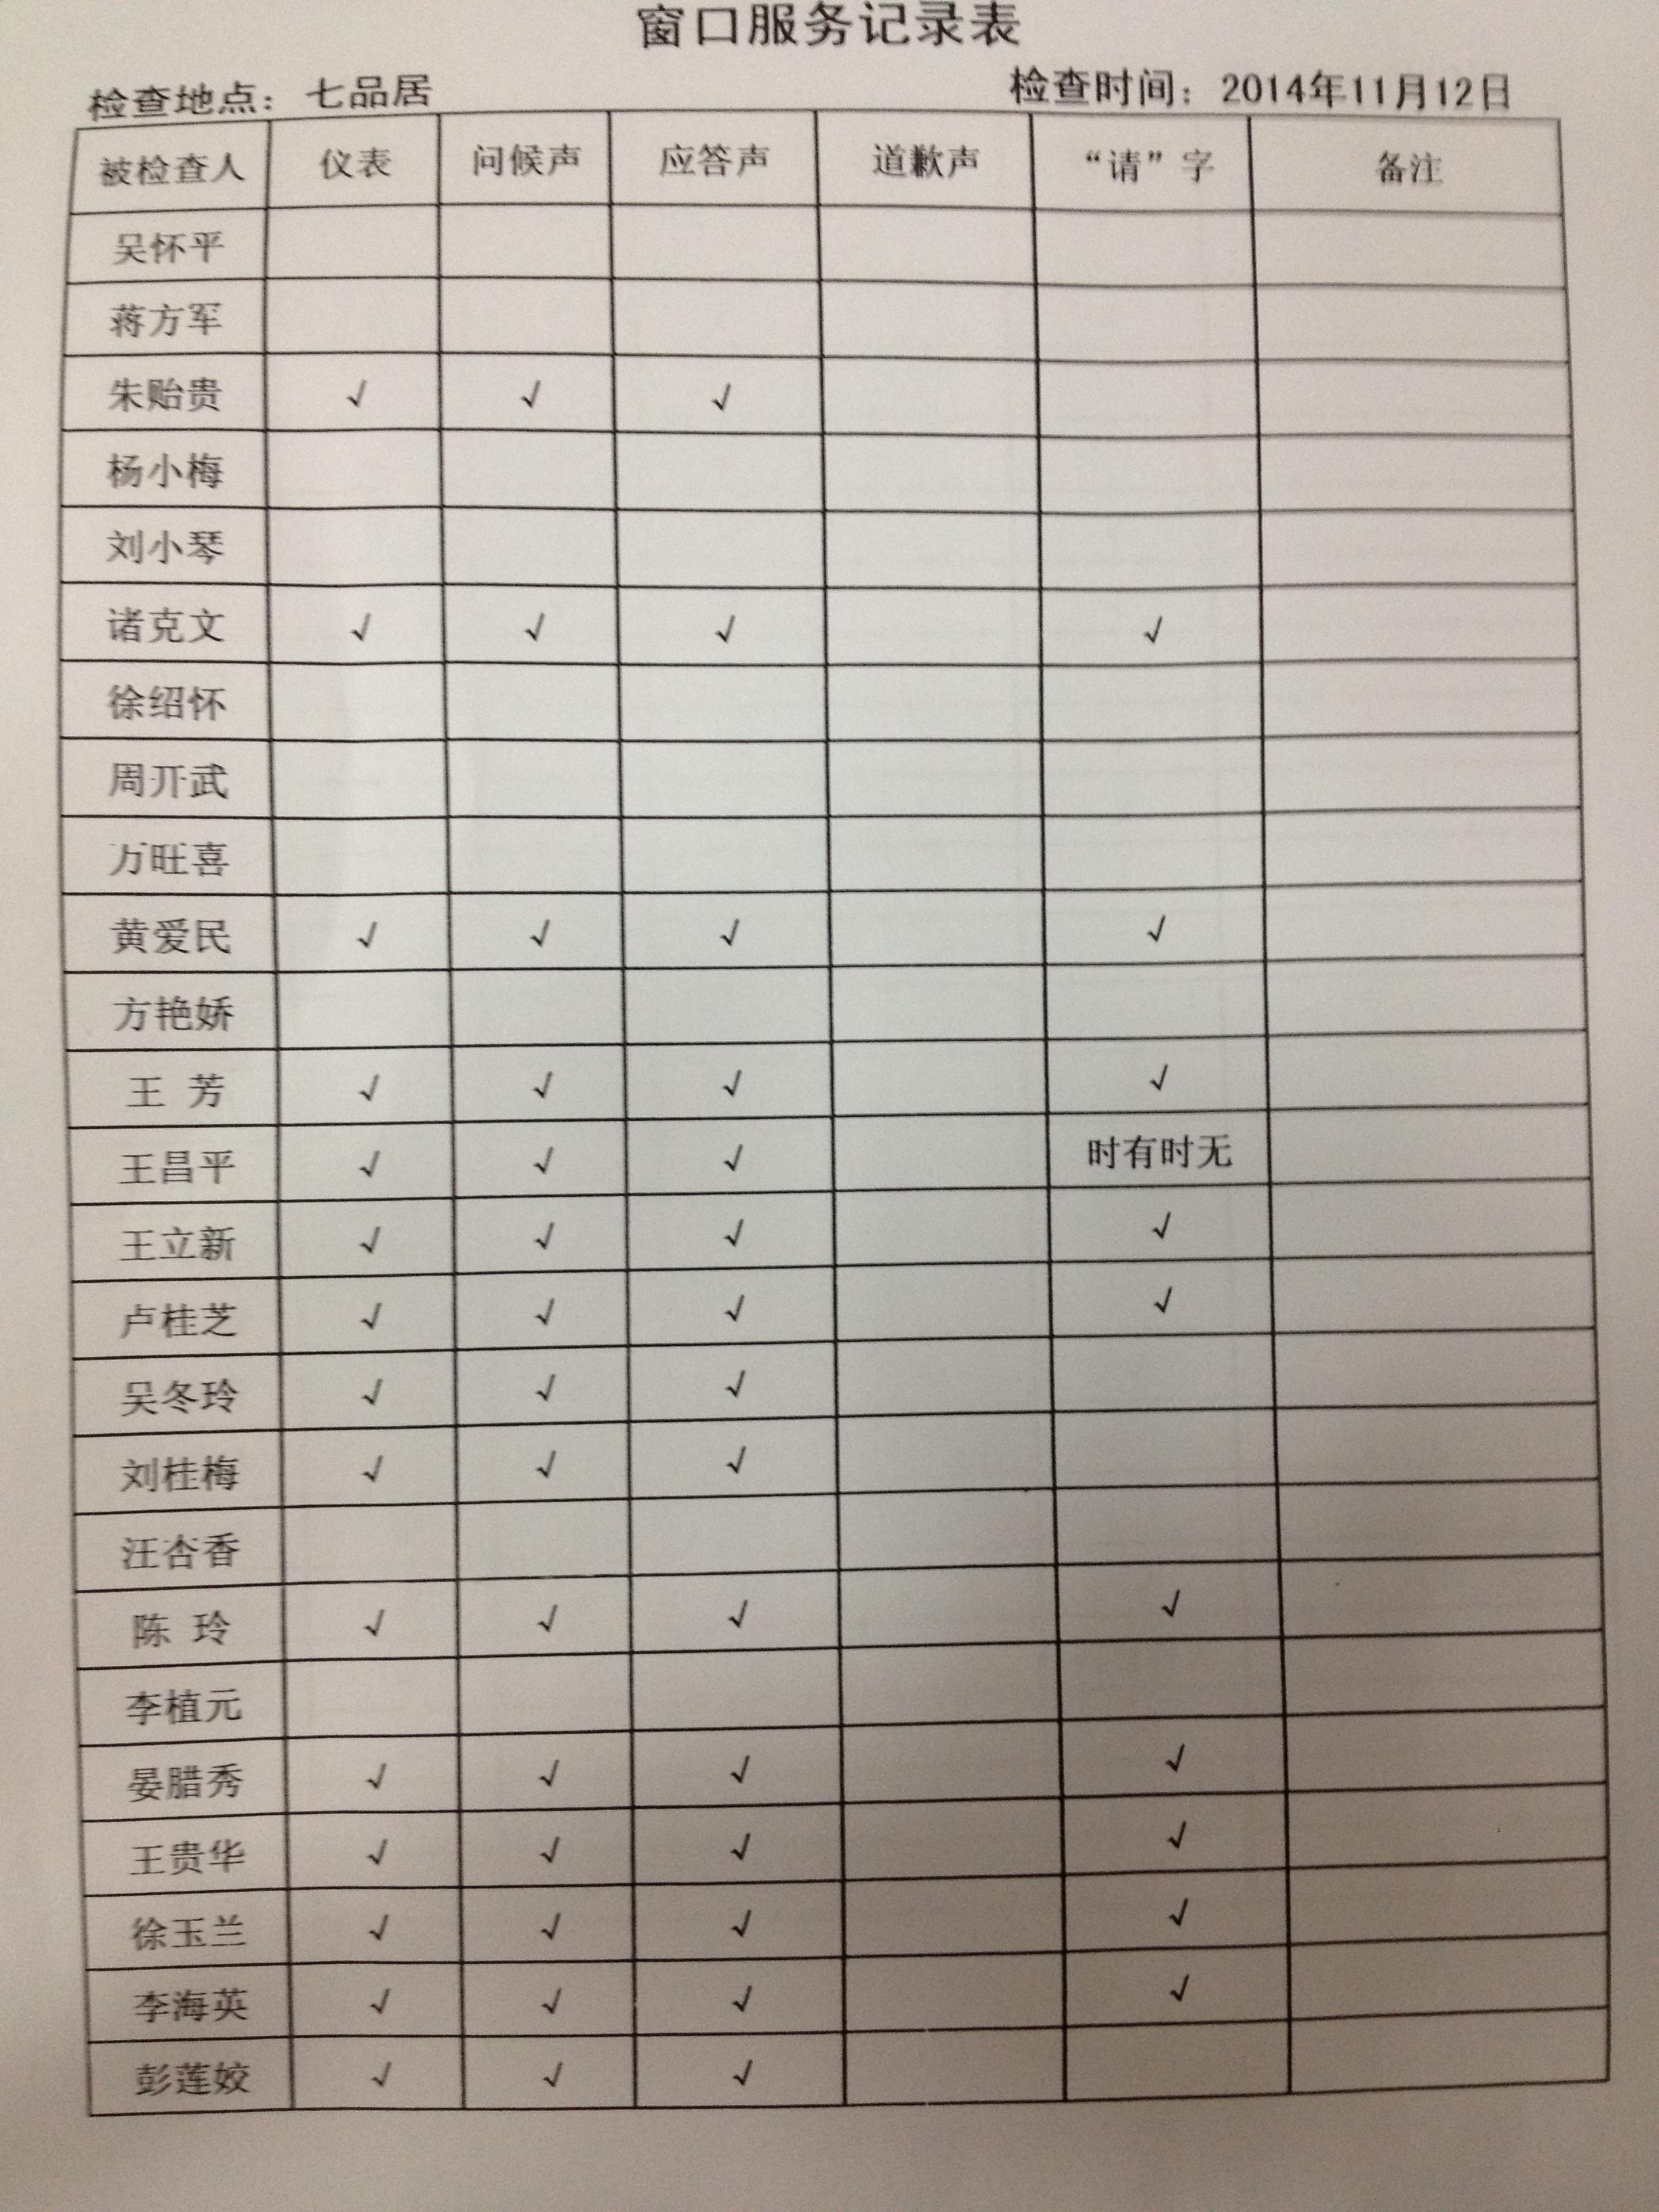 窗口服务记录表
检查地点：七品居 检查时间：2014年11月12日
被检查人 仪表 问候声 应答声 道歉声 “请”字 备注
吴怀平
蒋方军
朱贻贵 √ √ √
杨小梅
刘小琴
诸克文 √ √ √ √
徐绍怀
周开武
万旺喜
黄爱民 √ √ √ √
方艳娇
王 芳 √ √ √ √
王昌平 √ √ √ 时有时无
王立新 √ √ √ √
卢桂芝 √ √ √ √
吴冬玲 √ √ √
刘桂梅 √ √ √
汪杏香
陈 玲 √ √ √ √
李植元
晏腊秀 √ √ √ √
王贵华 √ √ √ √
徐玉兰 √ √ √ √
李海英 √ √ √ √
彭莲姣 √ √ √